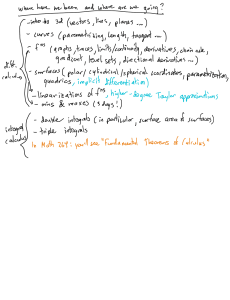 where have we been and where are we going?
diff. calculus
- intro to 3d (vectors, lines, planes ...)
- curves (parametrizing, length, tangent ...)
- fns (graphs, traces, limits/continuity, derivatives, chain rule,
gradient, level sets, directional derivatives ...)
- surfaces (polar/cylindrical/spherical coordinates, parametrization,
quadrics, implicit differentiation)
- linearizations of fns, higher-degree Taylor approximations
- mins & maxes (3 days!)
integral calculus
- double integrals (in particular, surface area of surfaces)
- triple integrals
In Math 264: you'll see "Fundamental Theorems of Calculus"